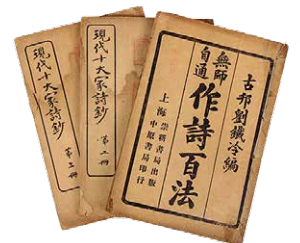 現代十大家詩鈔
第三冊
現代十大家詩鈔
第二冊
古邗劉鐵冷編
無師自通
作詩百法
上海崇新書局出版
中原書局印行